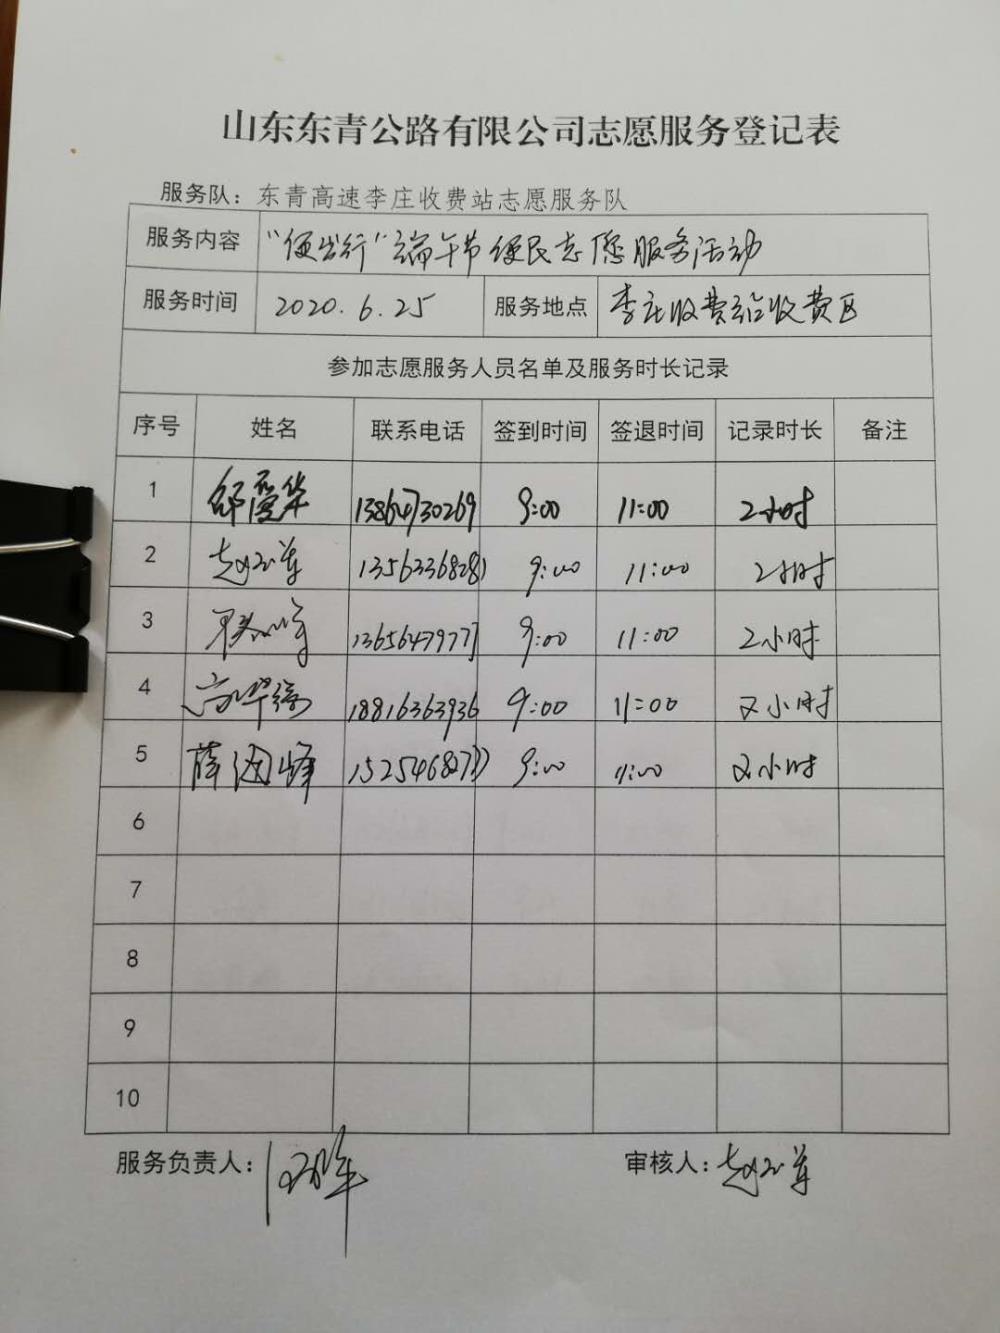 山东东青公路有限公司志愿服务登记表
服务队：东青高速李庄收费站志愿服务队
服务内容 “便出行”端午节便民志愿服务活动
服务时间 2020.6.25 服务地点 李庄收费站收费区
参加志愿服务人员名单及服务时长记录
序号 姓名 联系电话 签到时间 签退时间 记录时长 备注
1 13864730269 9:00 11:00 2小时
2 13563368281 9:00 11:00 2小时
3 13656479777 9:00 11:00 2小时
4 18816363936 9:00 11:00 2小时
5 薛国峰 9:00 11:00 2小时
6
7
8
9
10
服务负责人： 审核人：